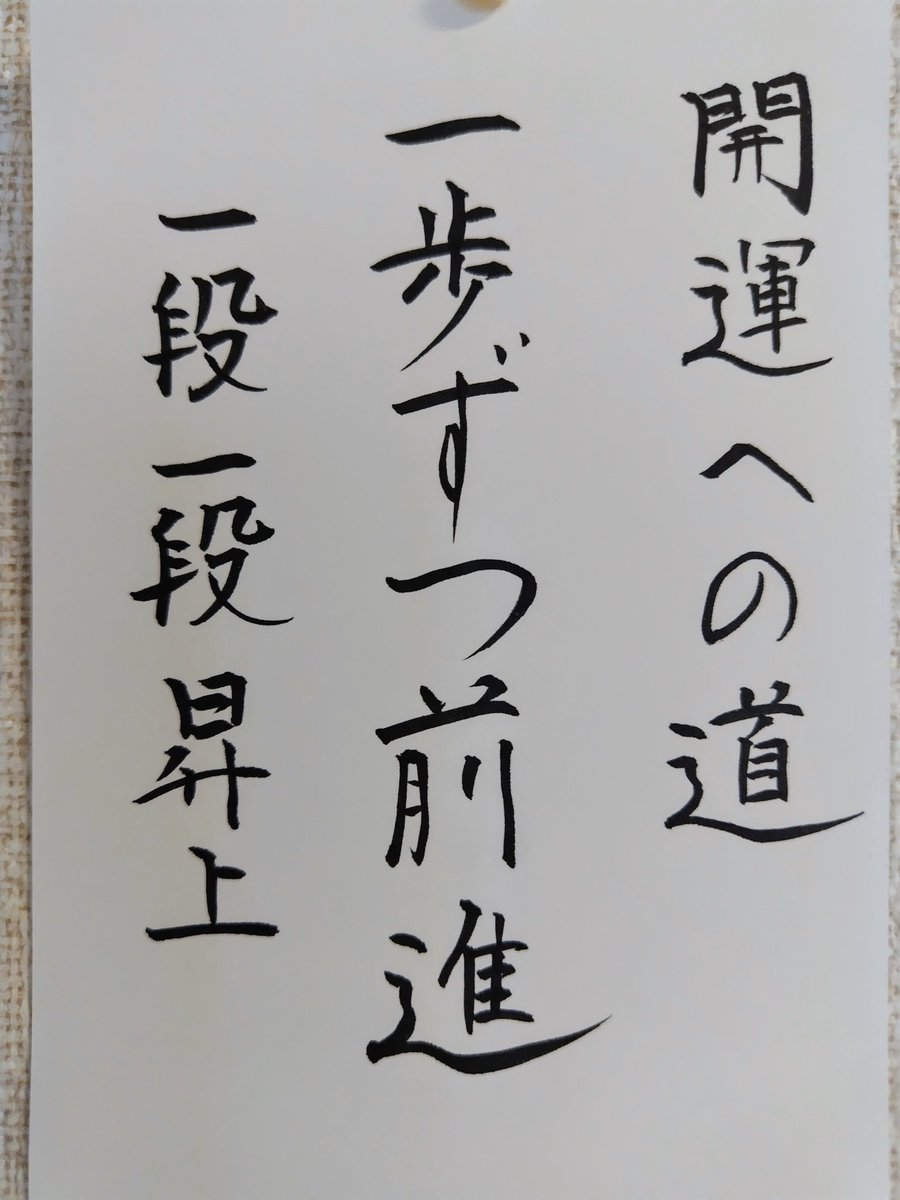 開運への道
一歩ずつ前進
一段一段昇上